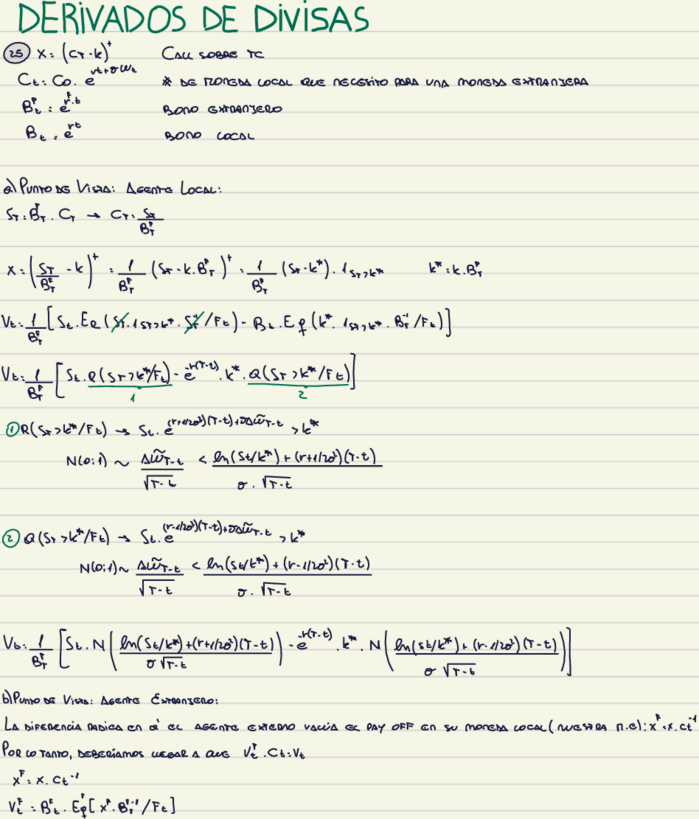 DERIVADOS DE DIVISAS
25 X = (C_T - k)^+ CALL SOBRE TC
C_t = C_0 . e^{νt+σW_t} # DE MONEDA LOCAL QUE NECESITO PARA UNA MONEDA EXTRANJERA
B_t^F = e^{r^F.t} BONO EXTRANJERO
B_t = e^{rt} BONO LOCAL
a) PUNTO DE VISTA: AGENTE LOCAL:
S_T = B_T^F . C_T → C_T = S_T / B_T^F
X = (S_T / B_T^F - k)^+ = 1 / B_T^F (S_T - k . B_T^F)^+ = 1 / B_T^F (S_T - k*) . 1_{S_T > k*} k* = k . B_T^F
V_t = 1 / B_T^F [S_t . E_R (S_T . 1_{S_T > k*} . S_T^{-1} / F_t) - B_t . E_Q (k* . 1_{S_T > k*} . B_T^{-1} / F_t)]
V_t = 1 / B_T^F [S_t . R(S_T > k* / F_t) - e^{-r(T-t)} . k* . Q(S_T > k* / F_t)]
1 2
① R(S_T > k* / F_t) → S_t . e^{(r+1/2σ²)(T-t)+σΔW̃_{T-t}} > k*
N(0;1) ~ ΔW̃_{T-t} / √T-t < ln(S_t/k*) + (r+1/2σ²)(T-t) / σ . √T-t
② Q(S_T > k* / F_t) → S_t . e^{(r-1/2σ²)(T-t)+σΔW̃_{T-t}} > k*
N(0;1) ~ ΔW̃_{T-t} / √T-t < ln(S_t/k*) + (r-1/2σ²)(T-t) / σ . √T-t
V_t = 1 / B_T^F [S_t . N(ln(S_t/k*) + (r+1/2σ²)(T-t) / σ √T-t) - e^{-r(T-t)} . k* . N(ln(S_t/k*) + (r-1/2σ²)(T-t) / σ √T-t)]
b) PUNTO DE VISTA: AGENTE EXTRANJERO:
LA DIFERENCIA RADICA EN Q' EL AGENTE EXTERNO VALÚA EL PAY OFF EN SU MONEDA LOCAL (NUESTRA M.E): X^F = X . C_t^{-1}
POR LO TANTO, DEBERÍAMOS LLEGAR A QUE V_t^F . C_t = V_t
X^F = X . C_t^{-1}
V_t^F = B_t^F . E_Q^F [X^F . B_T^{F-1} / F_t]